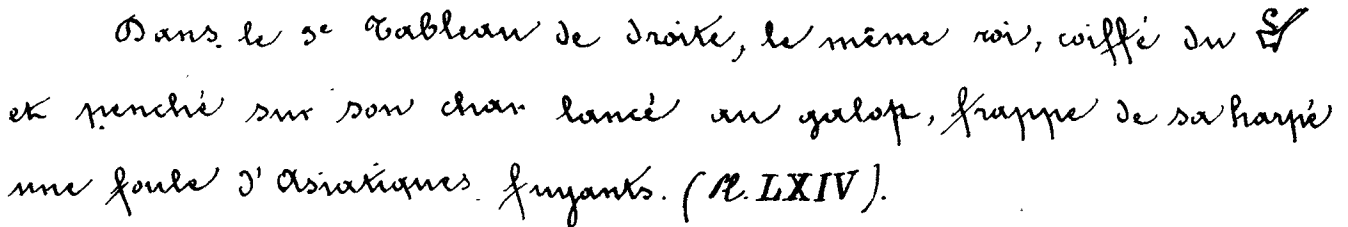 Dans le 3e Tableau de droite, le même roi, coiffé du
et penché sur son char lancé au galop, frappe de sa harpé
une foule d'Asiatiques fuyants. (Pl. LXIV).